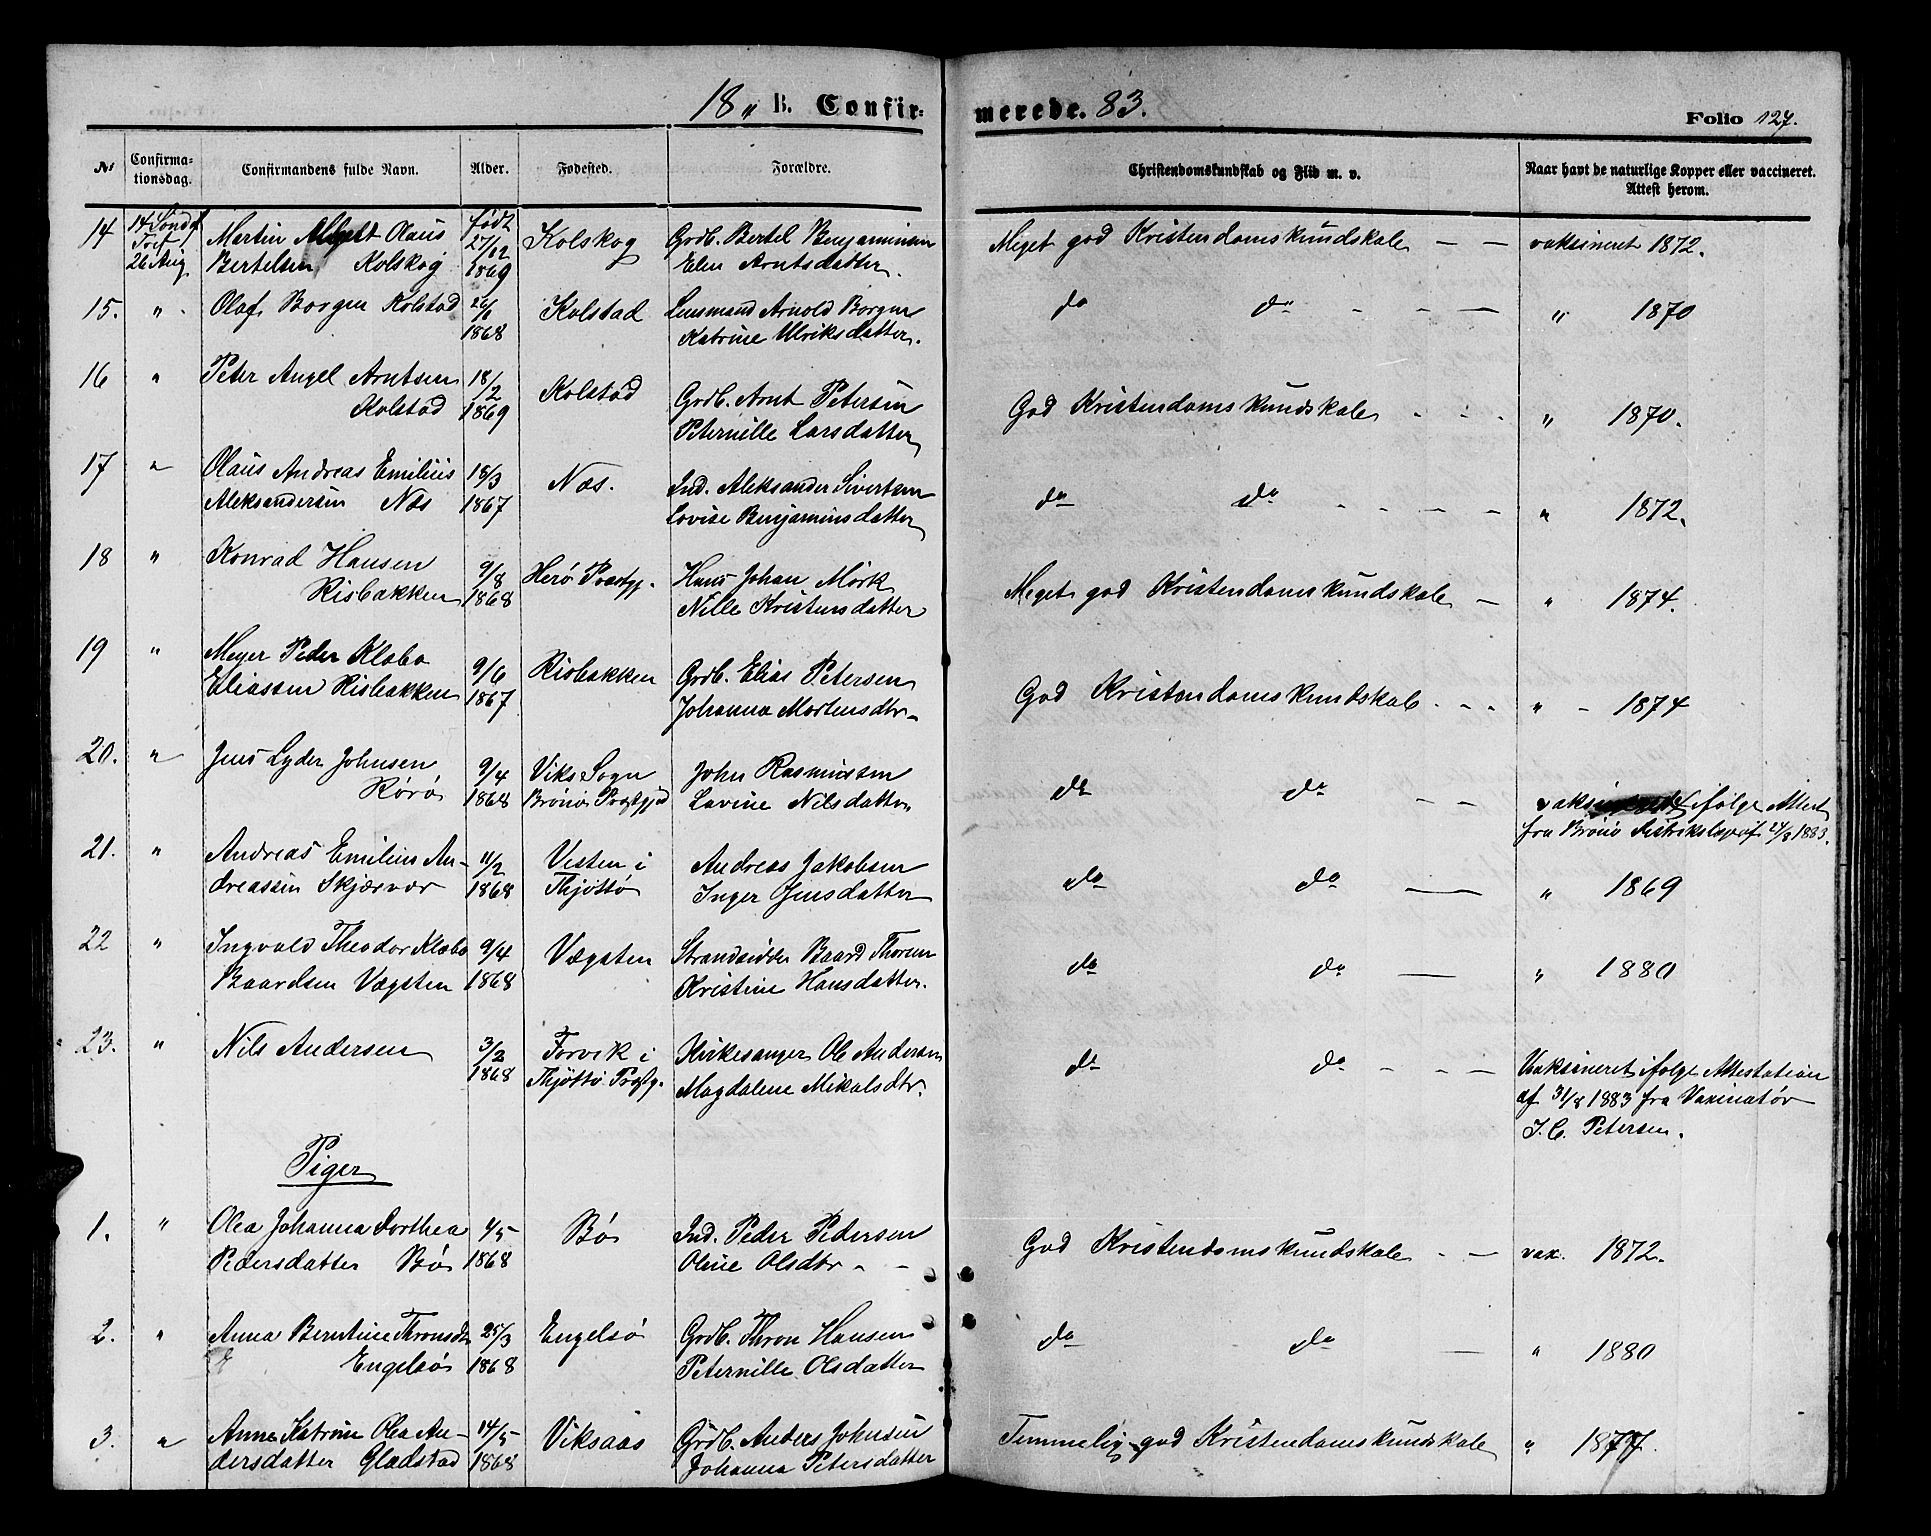 18 „ B. Confirmerede. 83.
Folio 127.
№ Confirmationsdag. Confirmandens fulde Navn. Alder. Fødested. Forældre. Christendomskundskab og Flid m. v. Naar havt de naturlige Kopper eller vaccineret. Attest herom.
14 14 Sönd. f Tref. 26 Aug. Martin Olaus Bertelsen Kolskog født 27/12 1869 Kolskog Grdb. Bertel Benjaminsen Elen Arntsdatter. Meget god Kristendomskundskab — — vaksineret 1872.
15. " Olaf Borgen Kolstad 1868 Kolstad Lensmand Arnold Borgen Katrine Ulriksdatter. do do - - — " 1870
16 " Peter Angel Arntsen Kolstad 18/2 1869 Kolstad Grdb. Arnt Petersen Peternille Larsdatter God Kristendomskundskab - - - " 1870.
17 " Olaus Andreas Emilius Aleksandersen Næs 18/3 1867 Næs. Ind. Aleksander Sivertsen Lovise Benjaminsdatter do do - - - - " 1872.
18 " Konrad Hansen Risbakken 9/8 1868 Herö Præstgj. Hans Johan Mörk Nille Kristensdatter Meget god Kristendomskundskab — " 1874.
19 " Meyer Peder Klæbo Eliassen Risbakken 9/6 1867 Risbakken Grdb. Elias Petersen Johanna Mortensdtr. God Kristendomskundskab - - - " - 1874
20. " Jens Lyder Johnsen Rörö 9/4 1868 Viks Sogn Brönö Præstgjeld John Rasmussen Lovine Nilsdatter do do - - vaksineret ifølge Attest fra Brönö af 24/8 1883.
21. " Andreas Emilius Andreassen Skjærvær 11/2 1868 Vesten i Thjöttö Andreas Jakobsen Inger Jensdatter do do — " 1869
22 " Ingvald Theodor Klæbo Baardsen Vægsten 9/4 1868 Vægsten Strandsidder Baard Thorsen Kristine Hansdatter. do do — " 1880
23. " Nils Andersen 3/2 1868 Forvik i Thjöttö Præstg. Kirkesanger Ole Andersen Magdalene Mikalsdtr. do do - - - Vaksineret ifølge Attestation af 31/8 1883 fra Vaxinatör J. C. Petersen.
Piger
1. " Olea Johanna Dorthea Pedersdatter Bö 4/5 1868 Bö Ind. Peder Pedersen Oline Olsdtr - - God Kristendomskundskab - — vax. 1872.
2. " Anna Berntine Thronsdt Engelsö 25/3 1868 Engelsö Grdb. Thron Hansen Peternille Olsdatter do do — " 1880
3. " Anne Katrine Olea Andersdatter Gladstad 14/5 1868 Viksaas Grdb. Anders Johnsen Johanna Petersdatter Temmelig god Kristendomskundskab " 1877.